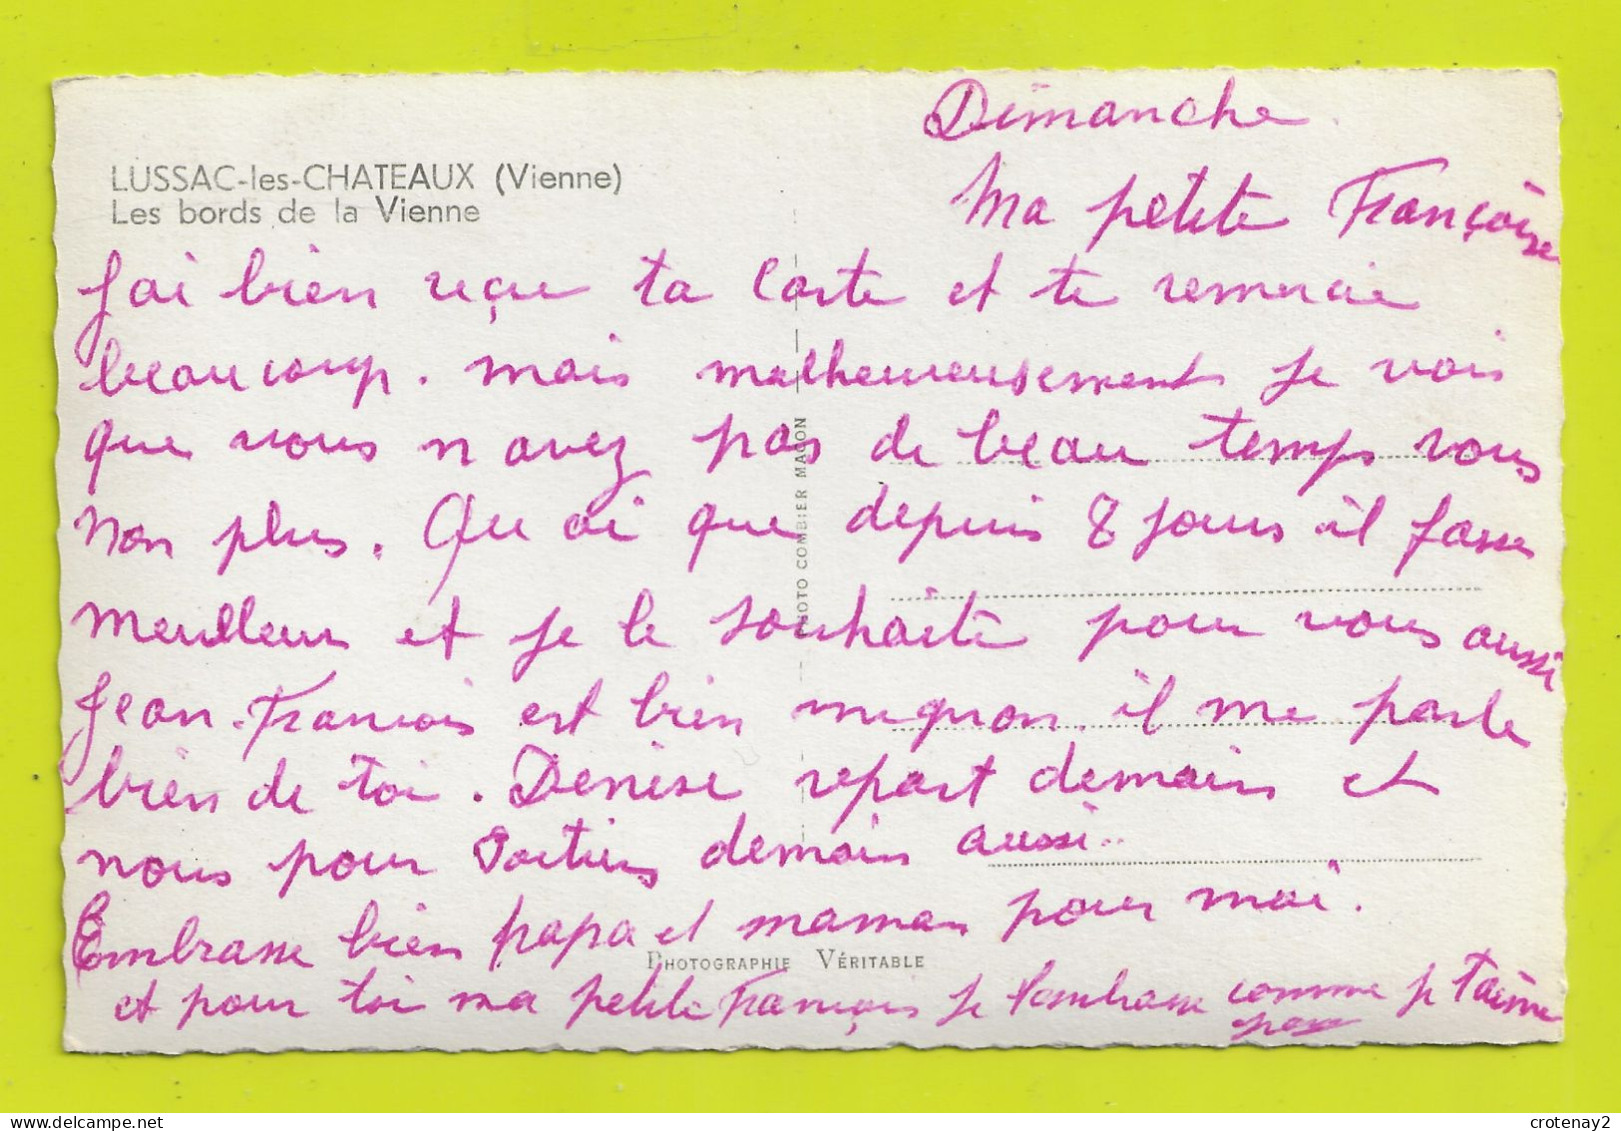 Dimanche.
LUSSAC-les-CHATEAUX (Vienne)
Les bords de la Vienne
Ma petite Françoise
J'ai bien reçue ta Carte et te remercie
beaucoup. mais malheureusement je vois
que vous n'avez pas de beau temps vous
non plus. Qu ai que depuis 8 jours il fasse
meilleur et je le souhaite pour vous aussi
Jean-François est bien mignon. il me parle
bien de toi. Denise repart demain et
nous pour Poitiers demain aussi..
Embrasse bien papa et maman pour moi.
et pour toi ma petite François je t'embrasse comme je t'aime
PHOTO COMBIER MACON
PHOTOGRAPHIE VÉRITABLE
crotenay2